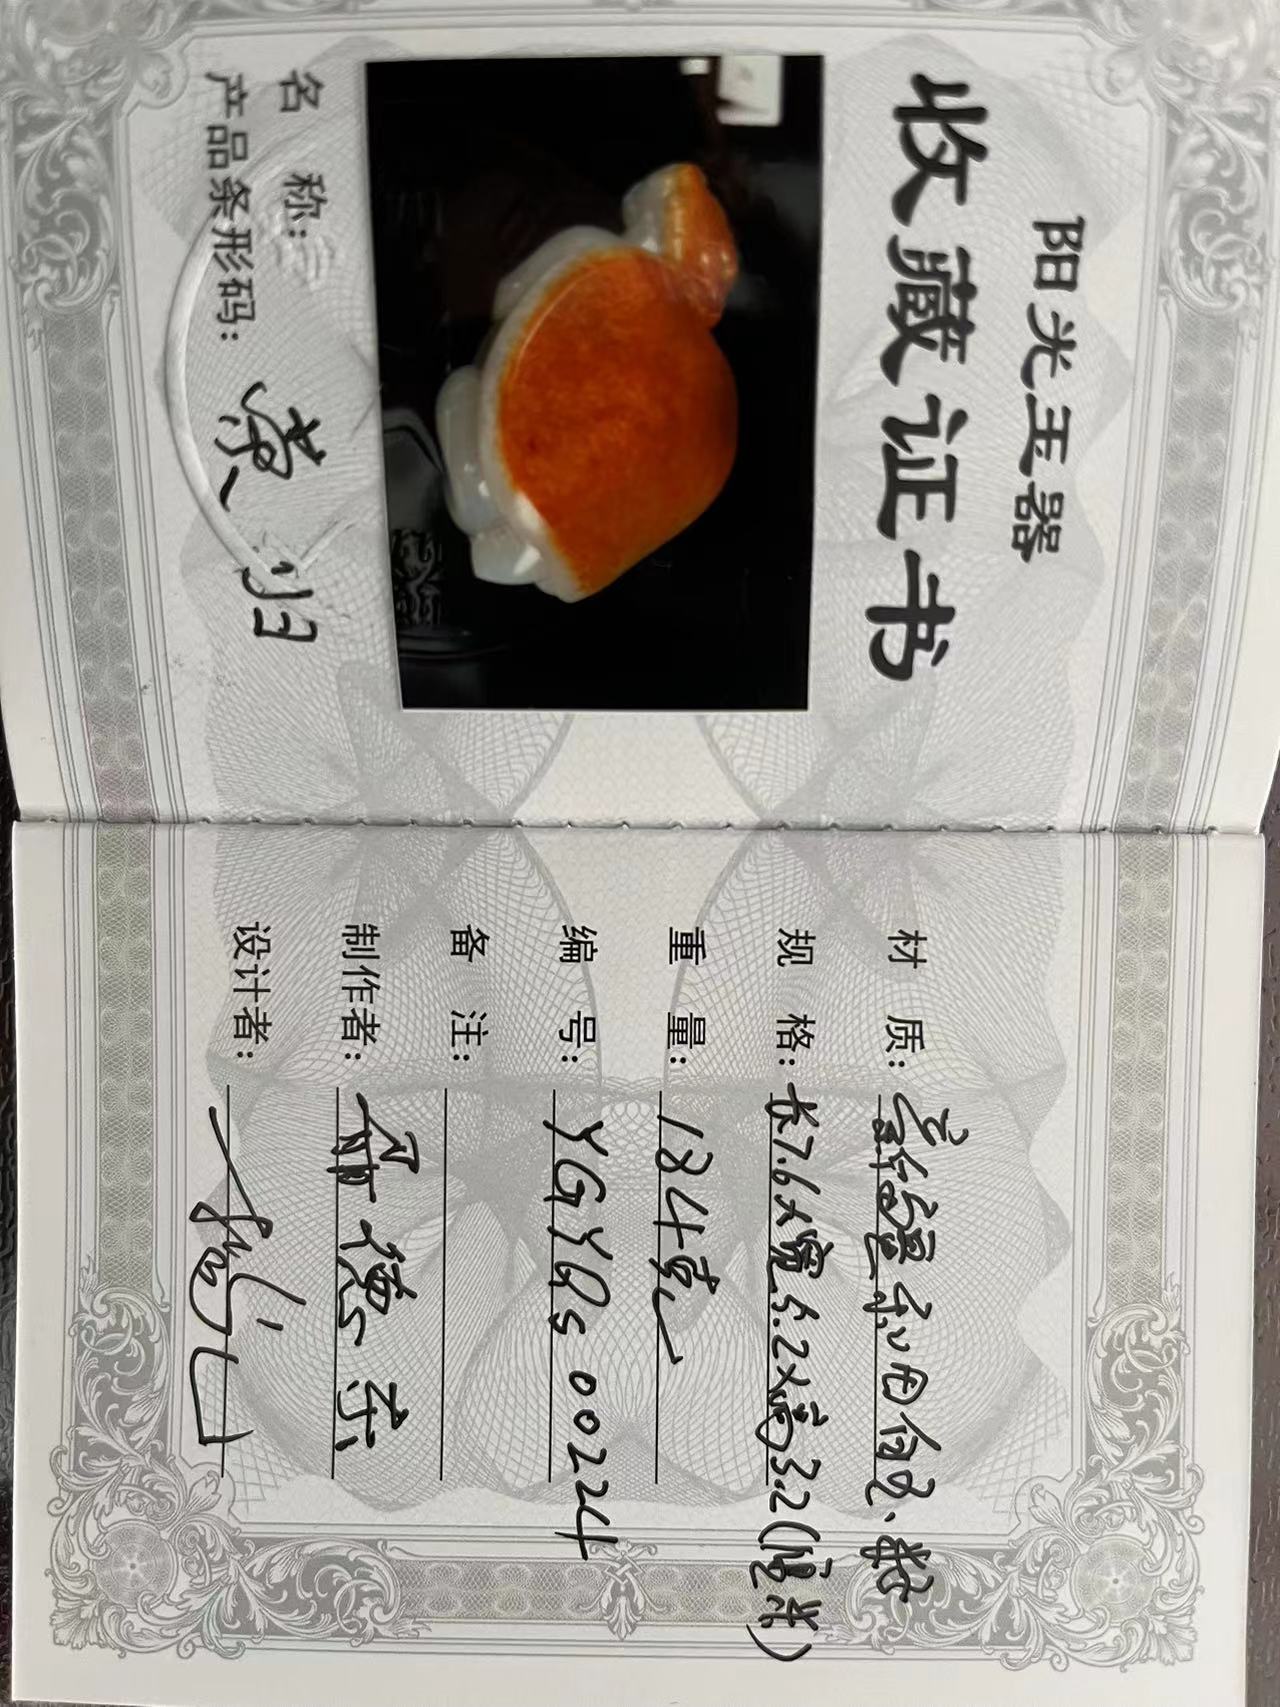 阳光玉器
收藏证书
名 称:
产品条形码: 荣归
材 质: 新疆和田白玉、
规 格: 长7.6×宽5.2×高3.2(厘米)
重 量: 184克
编 号: YGYQs 00224
备 注:
制作者: 德
设计者: